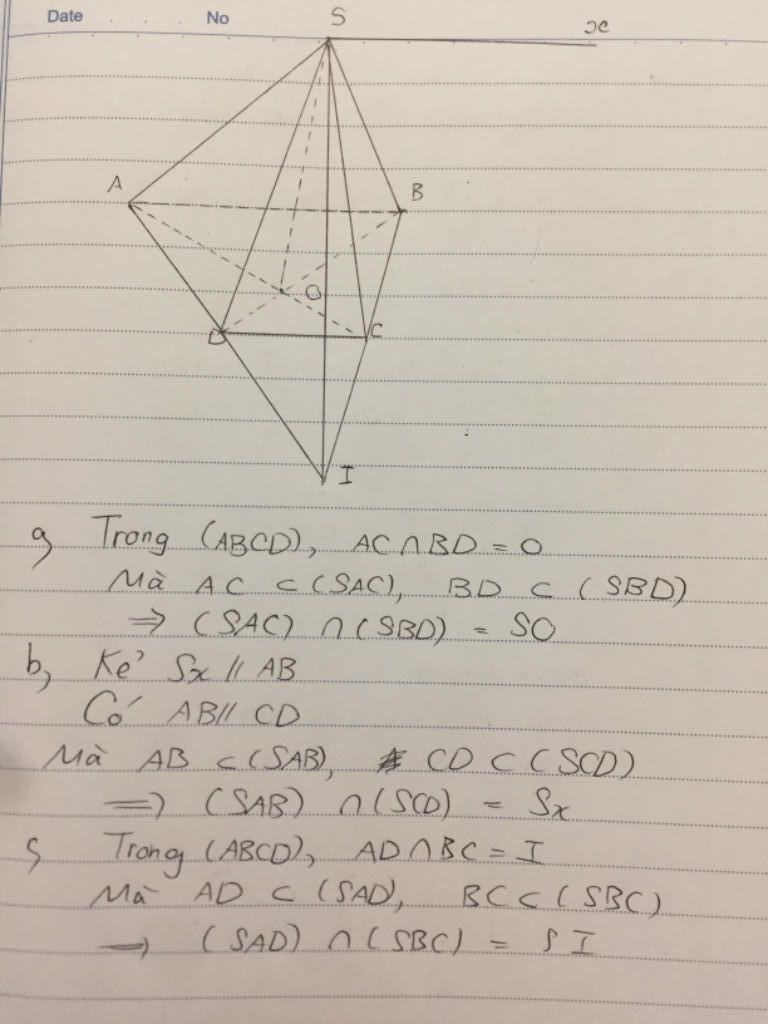 Date No
S
x
A
B
O
D
C
I
a, Trong (ABCD), AC ∩ BD = O
Mà AC ⊂ (SAC), BD ⊂ (SBD)
⇒ (SAC) ∩ (SBD) = SO
b, Kẻ Sx // AB
Có AB // CD
Mà AB ⊂ (SAB), CD ⊂ (SCD)
⇒ (SAB) ∩ (SCD) = Sx
c, Trong (ABCD), AD ∩ BC = I
Mà AD ⊂ (SAD), BC ⊂ (SBC)
⇒ (SAD) ∩ (SBC) = SI